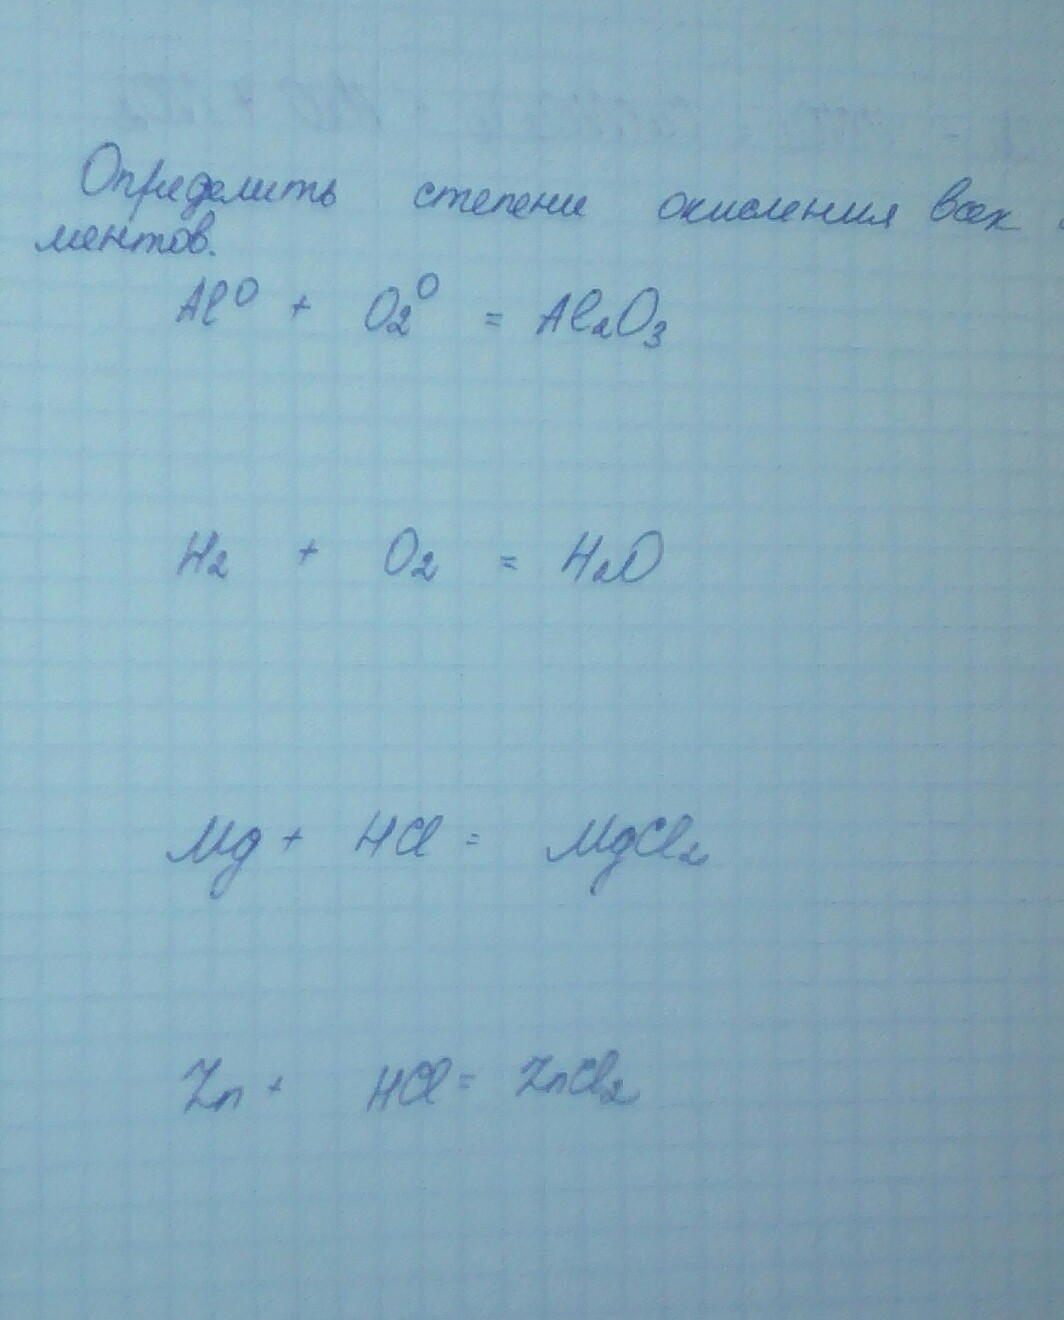 Определить степени окисления всех
ментов.
Al⁰ + O₂⁰ = Al₂O₃
H₂ + O₂ = H₂O
Mg + HCl = MgCl₂
Zn + HCl = ZnCl₂